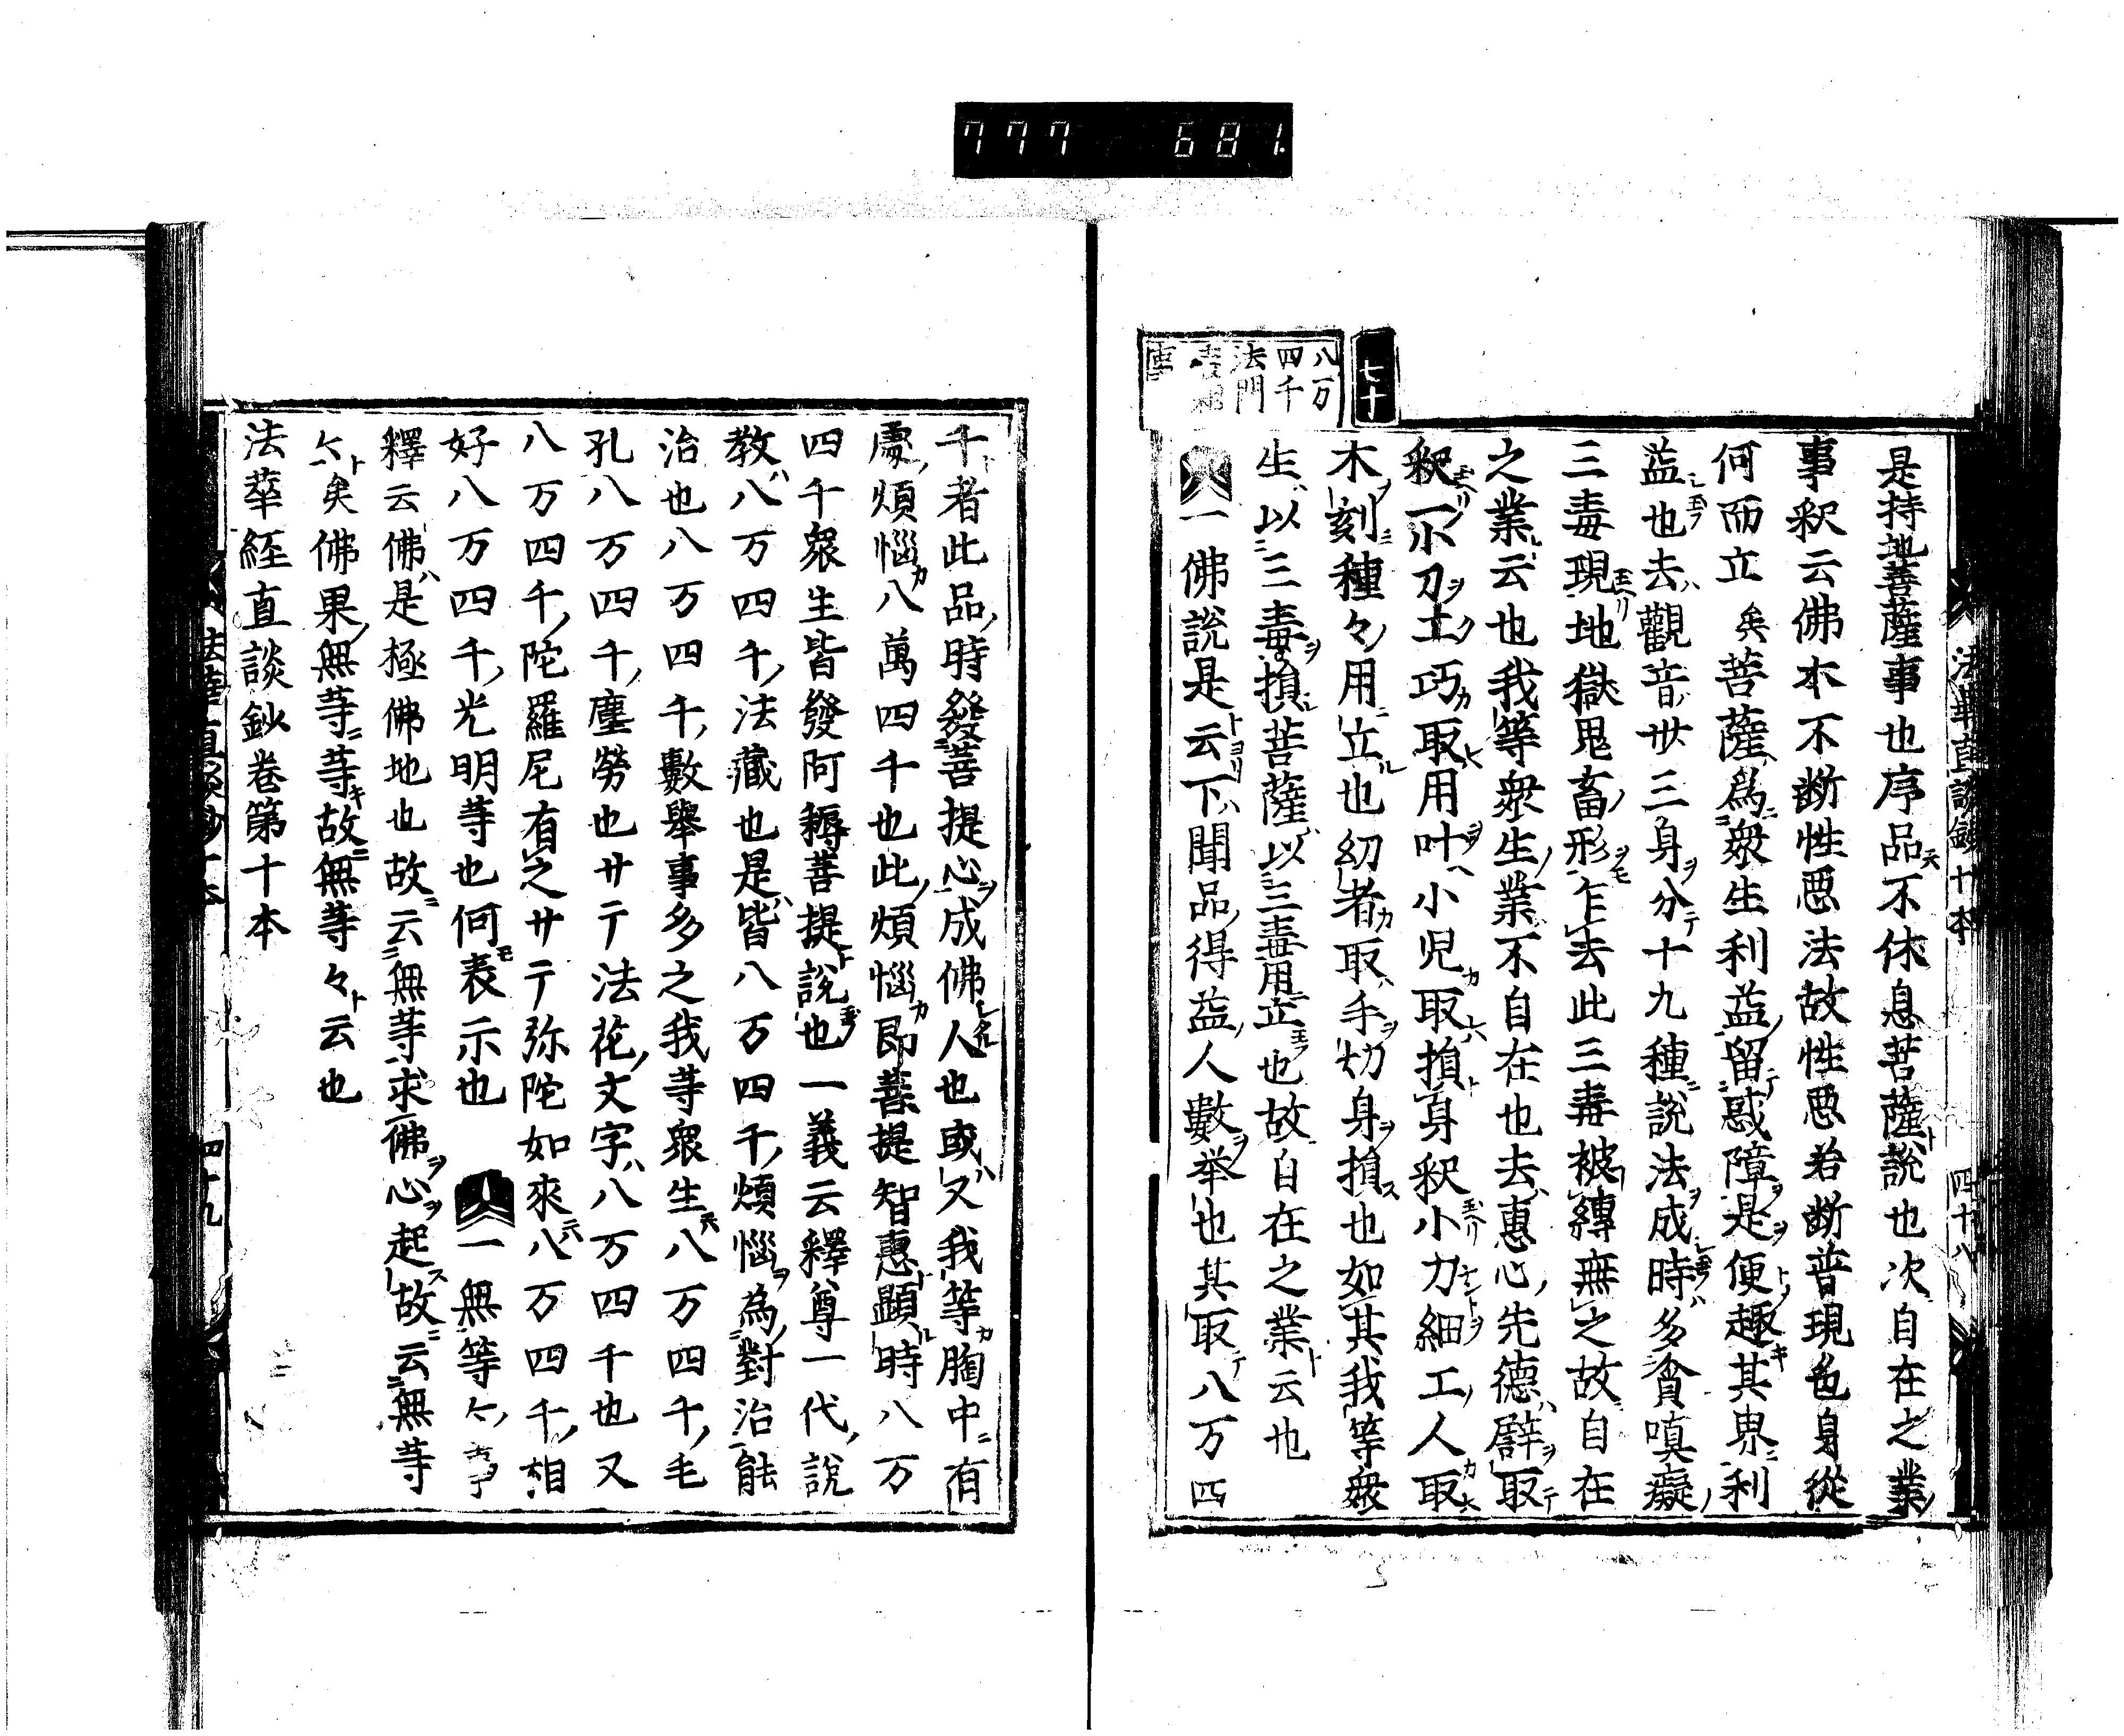 777 681
七十
八万
四千
法門
是持地菩薩事也序品不休息菩薩說也次自在之業
事釈云佛本不断性悪法故性悪若断普現色身從
何而立矣菩薩為衆生利益留惑障是便趣其界利
益也去觀音丗三身分十九種說法成時多貪嗔癡
三毒現地獄鬼畜形乍去此三毒被縛無之故自在
之業云也我等衆生業不自在也去惠心先德譬取
釈一小刀土巧取用叶小児取損身釈小刀細工人取
木刻種々用立也幼者取手切身損也如其我等衆
生以三毒損菩薩以三毒用立也故自在之業云也
一佛說是云下聞品得益人數举也其取八万四
千者此品時發菩提心成佛人也或又我等胸中有
處煩惱八萬四千也此煩惱即菩提智惠顯時八万
四千衆生皆發阿耨菩提說也一義云釋尊一代說
教八万四千法藏也是皆八万四千煩惱為對治能
治也八万四千數舉事多之我等衆生八万四千毛
孔八万四千塵勞也廿亍法花文字八万四千也又
八万四千陀羅尼有之廿亍弥陀如來八万四千相
好八万四千光明等也何表示也 一無等々事
釋云佛是極佛地也故云無等求佛心起故云無等
々矣佛果無等等故無等々云也
法華経直談鈔卷第十本
法華直談鈔十本 四十八
法華直談鈔十本 四十九